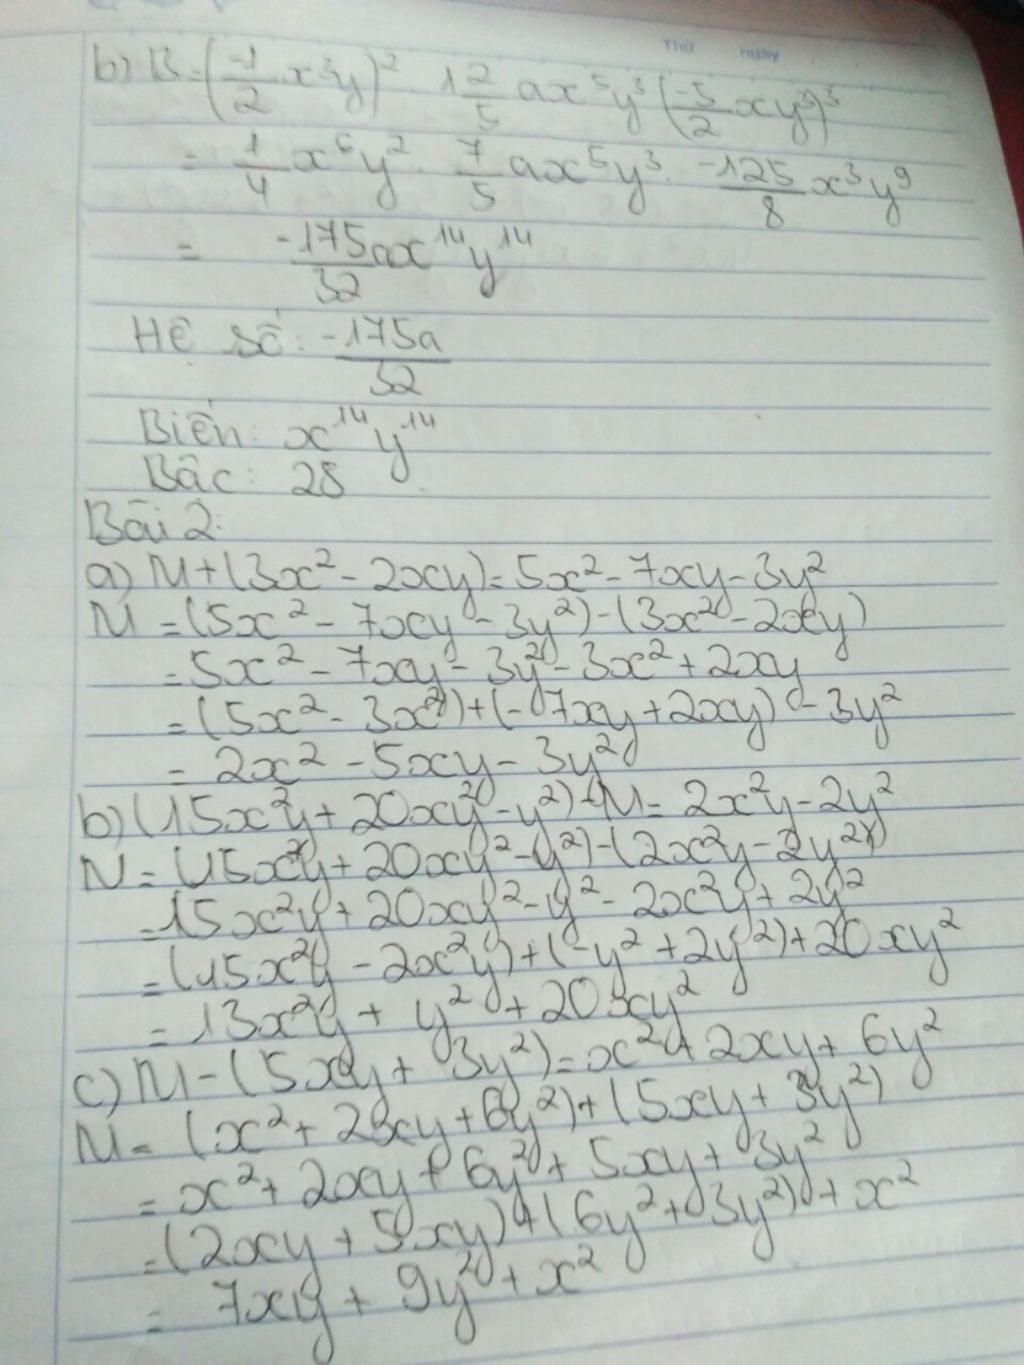 Thứ ngày
b) B = (-1/2 x³y)² . 1 2/5 ax⁵y³ (-5/2 xy³)³
= 1/4 x⁶y² . 7/5 ax⁵y³ . -125/8 x³y⁹
= -175/32 ax¹⁴y¹⁴
Hệ số: -175a/32
Biến: x¹⁴y¹⁴
Bậc: 28
Bài 2:
a) M + (3x² - 2xy) = 5x² - 7xy - 3y²
M = (5x² - 7xy - 3y²) - (3x² - 2xy)
= 5x² - 7xy - 3y² - 3x² + 2xy
= (5x² - 3x²) + (-7xy + 2xy) - 3y²
= 2x² - 5xy - 3y²
b) (15x²y + 20xy² - y²) - M = 2x²y - 2y²
M = (15x²y + 20xy² - y²) - (2x²y - 2y²)
= 15x²y + 20xy² - y² - 2x²y + 2y²
= (15x²y - 2x²y) + (-y² + 2y²) + 20xy²
= 13x²y + y² + 20xy²
c) M - (5xy + 3y²) = x² + 2xy + 6y²
M = (x² + 2xy + 6y²) + (5xy + 3y²)
= x² + 2xy + 6y² + 5xy + 3y²
= (2xy + 5xy) + (6y² + 3y²) + x²
= 7xy + 9y² + x²